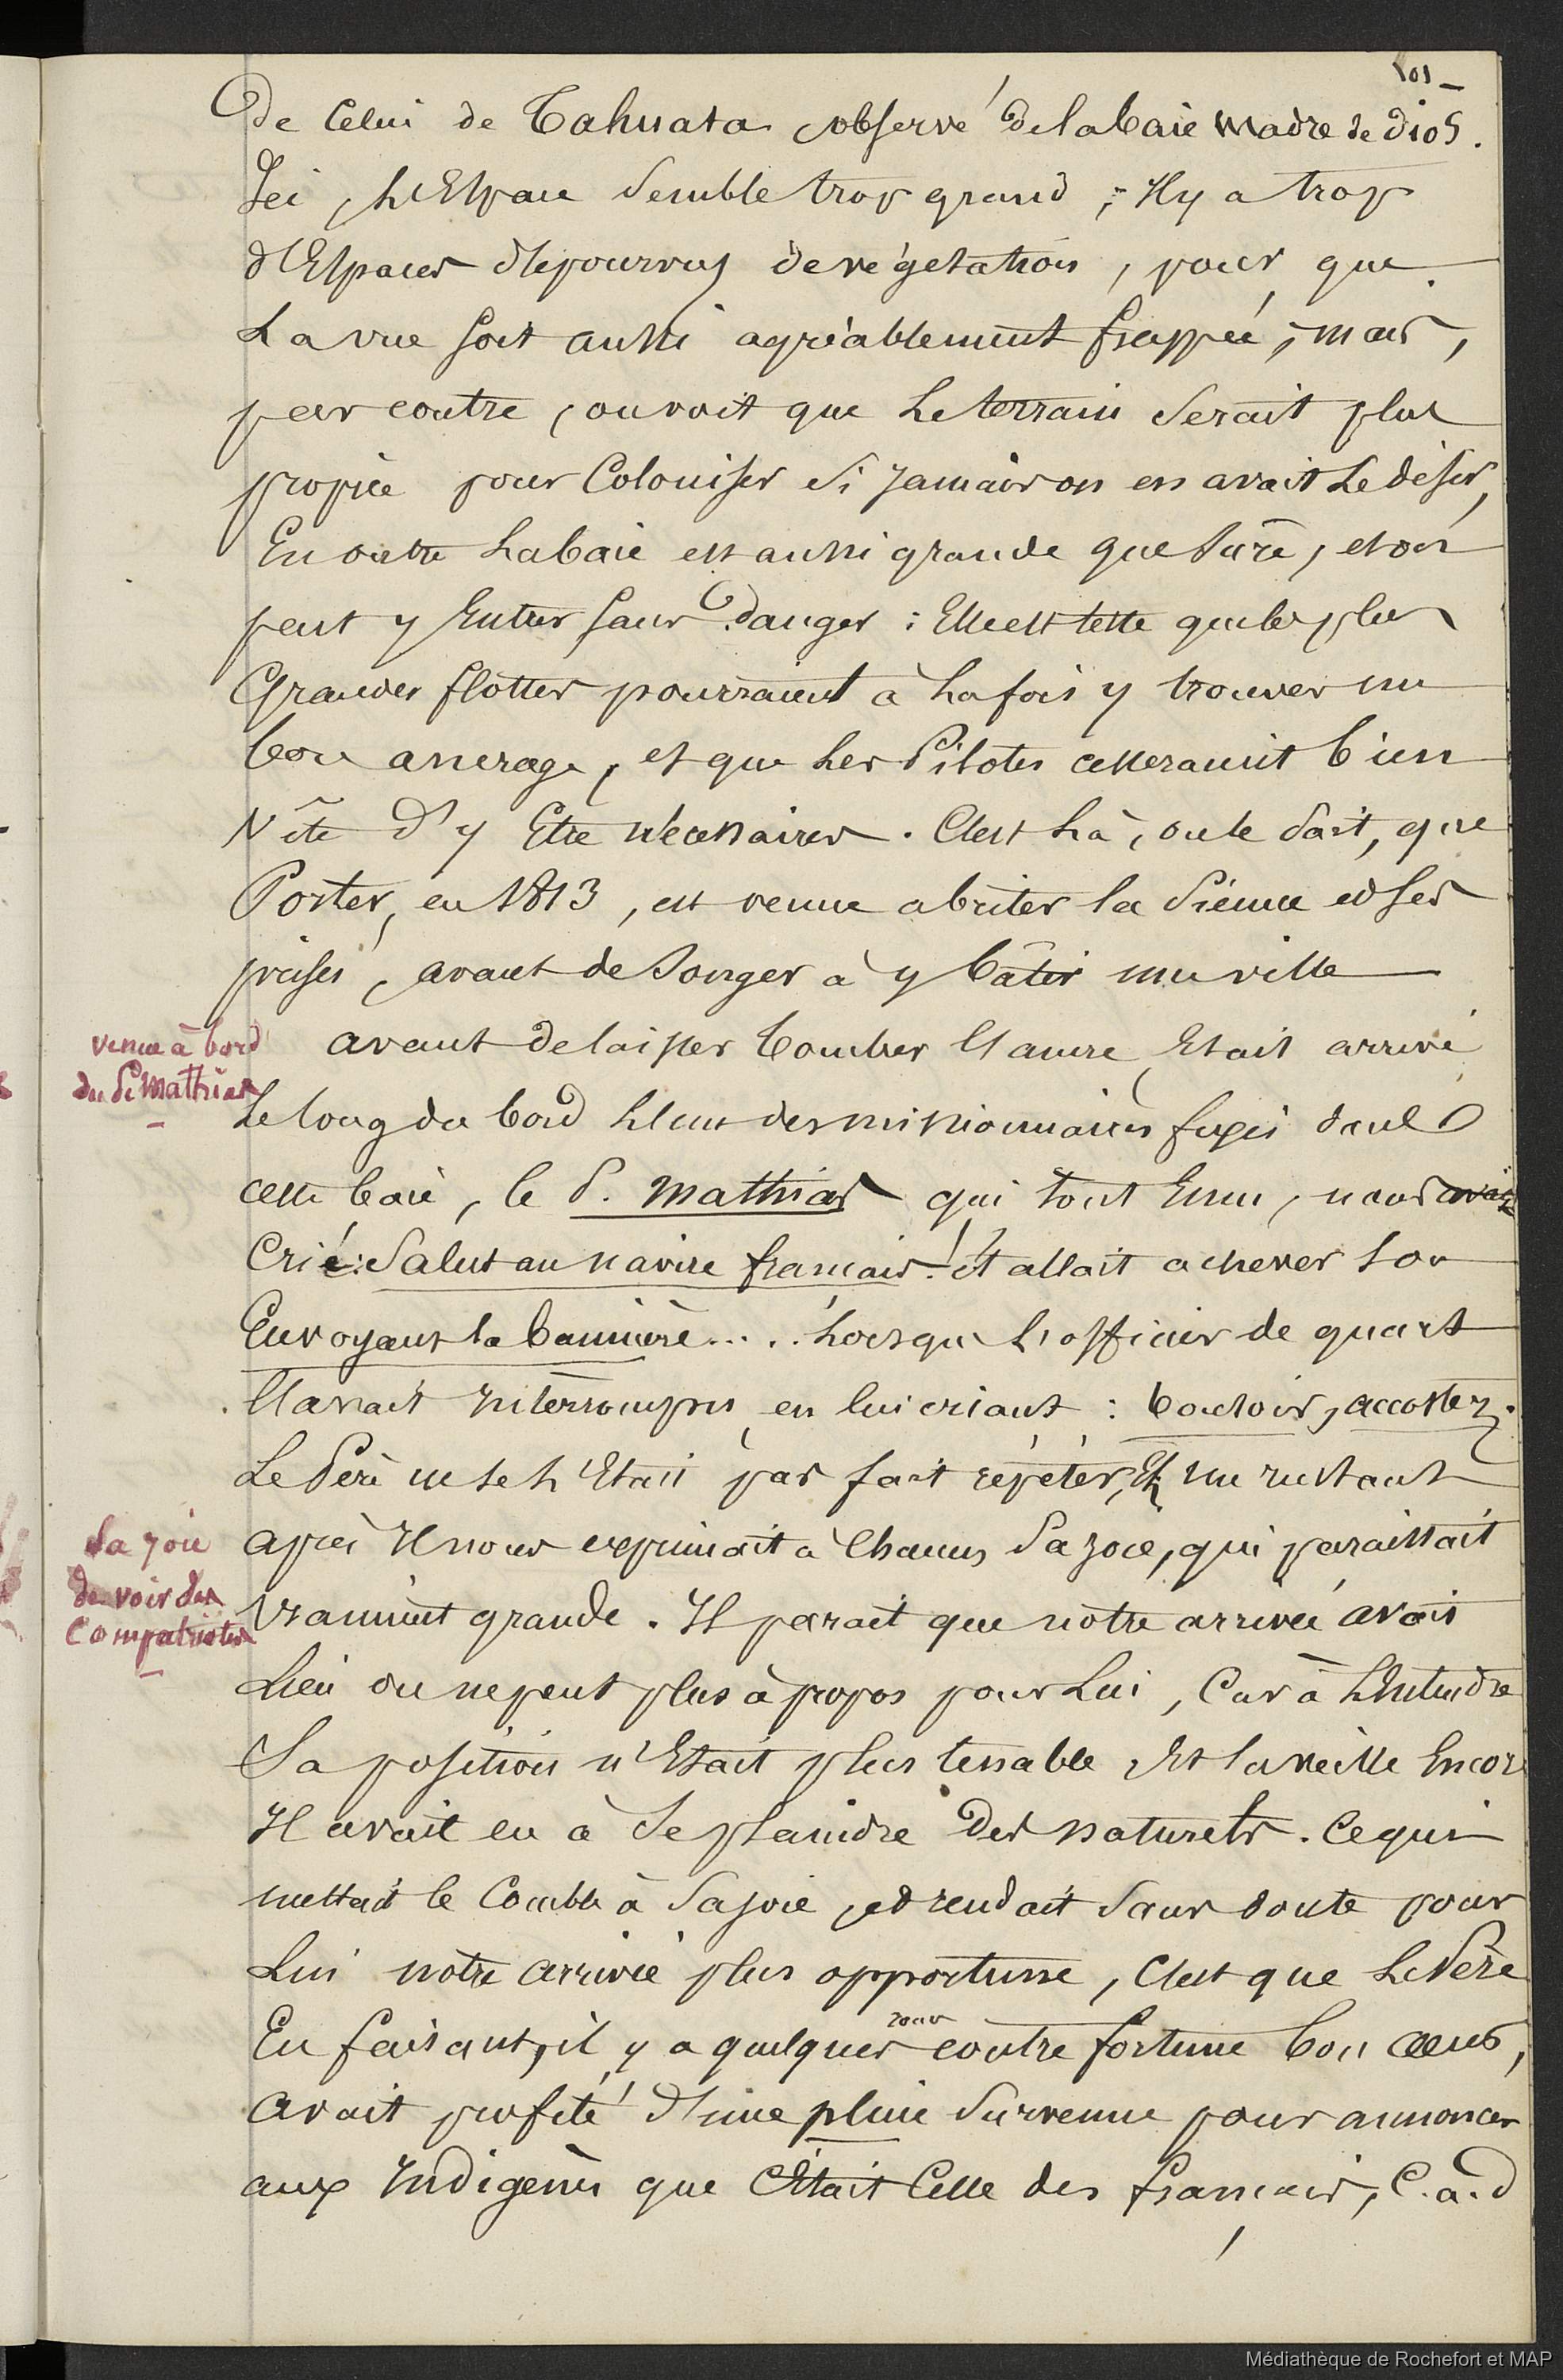 101_
De Celui de Tahuata observé de la baie Madre de Dios.
Ici, L'Espace Semble trop grand ; Il y a trop
d'Espaces dépourvus de végétation, pour que
La vue soit aussi agréablement frappée ; mais,
par contre, on voit que Le terrain Serait plus
propice pour Coloniser Si Jamais on en avait Le désir,
En outre La baie est aussi grande que Sûre, et on
peut y Entrer sans danger : Elle est telle que les plus
Grandes flottes pourraient à La fois y trouver un
bon ancrage, et que Les Pilotes cesseraient bien
Vite d'y Etre nécessaires. C'est Là, on le Sait, que
Porter, en 1813, est venu abriter la Sienne et ses
prises, avant de Songer à y bâtir une ville
venue à bord
du P. Mathias
avant de laisser tomber l'ancre Etait arrivé
Le long du bord L'un des missionnaires fixés dans
cette baie, le P. Mathias qui tout Emu, nous avait
Crié : Salut au navire français ! et allait achever Son
Envoyant la bannière.... Lorsque L'officier de quart
l'avait Interrompu en lui criant : bonsoir, accostez.
Le Père ne se L'Etait pas fait répéter, Et un instant
Sa Joie
de voir des
Compatriotes
après Il nous exprimait à Chacun Sa Joie, qui paraissait
Vraiment grande. Il parait que notre arrivée avait
Lieu on ne peut plus à propos pour Lui, Car à L'Entendre
Sa position n'Etait plus tenable Et la veille Encore
Il avait eu à Se plaindre Des naturels. Ce qui
mettait le Comble à Sa joie, et rendait Sans doute pour
Lui notre arrivée plus opportune, C'est que Le Père
En faisant, il y a quelques jours contre fortune bon cœur,
avait profité d'une pluie Survenue pour annoncer
aux Indigènes que C'Etait Celle des français, C.a.d
Médiathèque de Rochefort et MAP